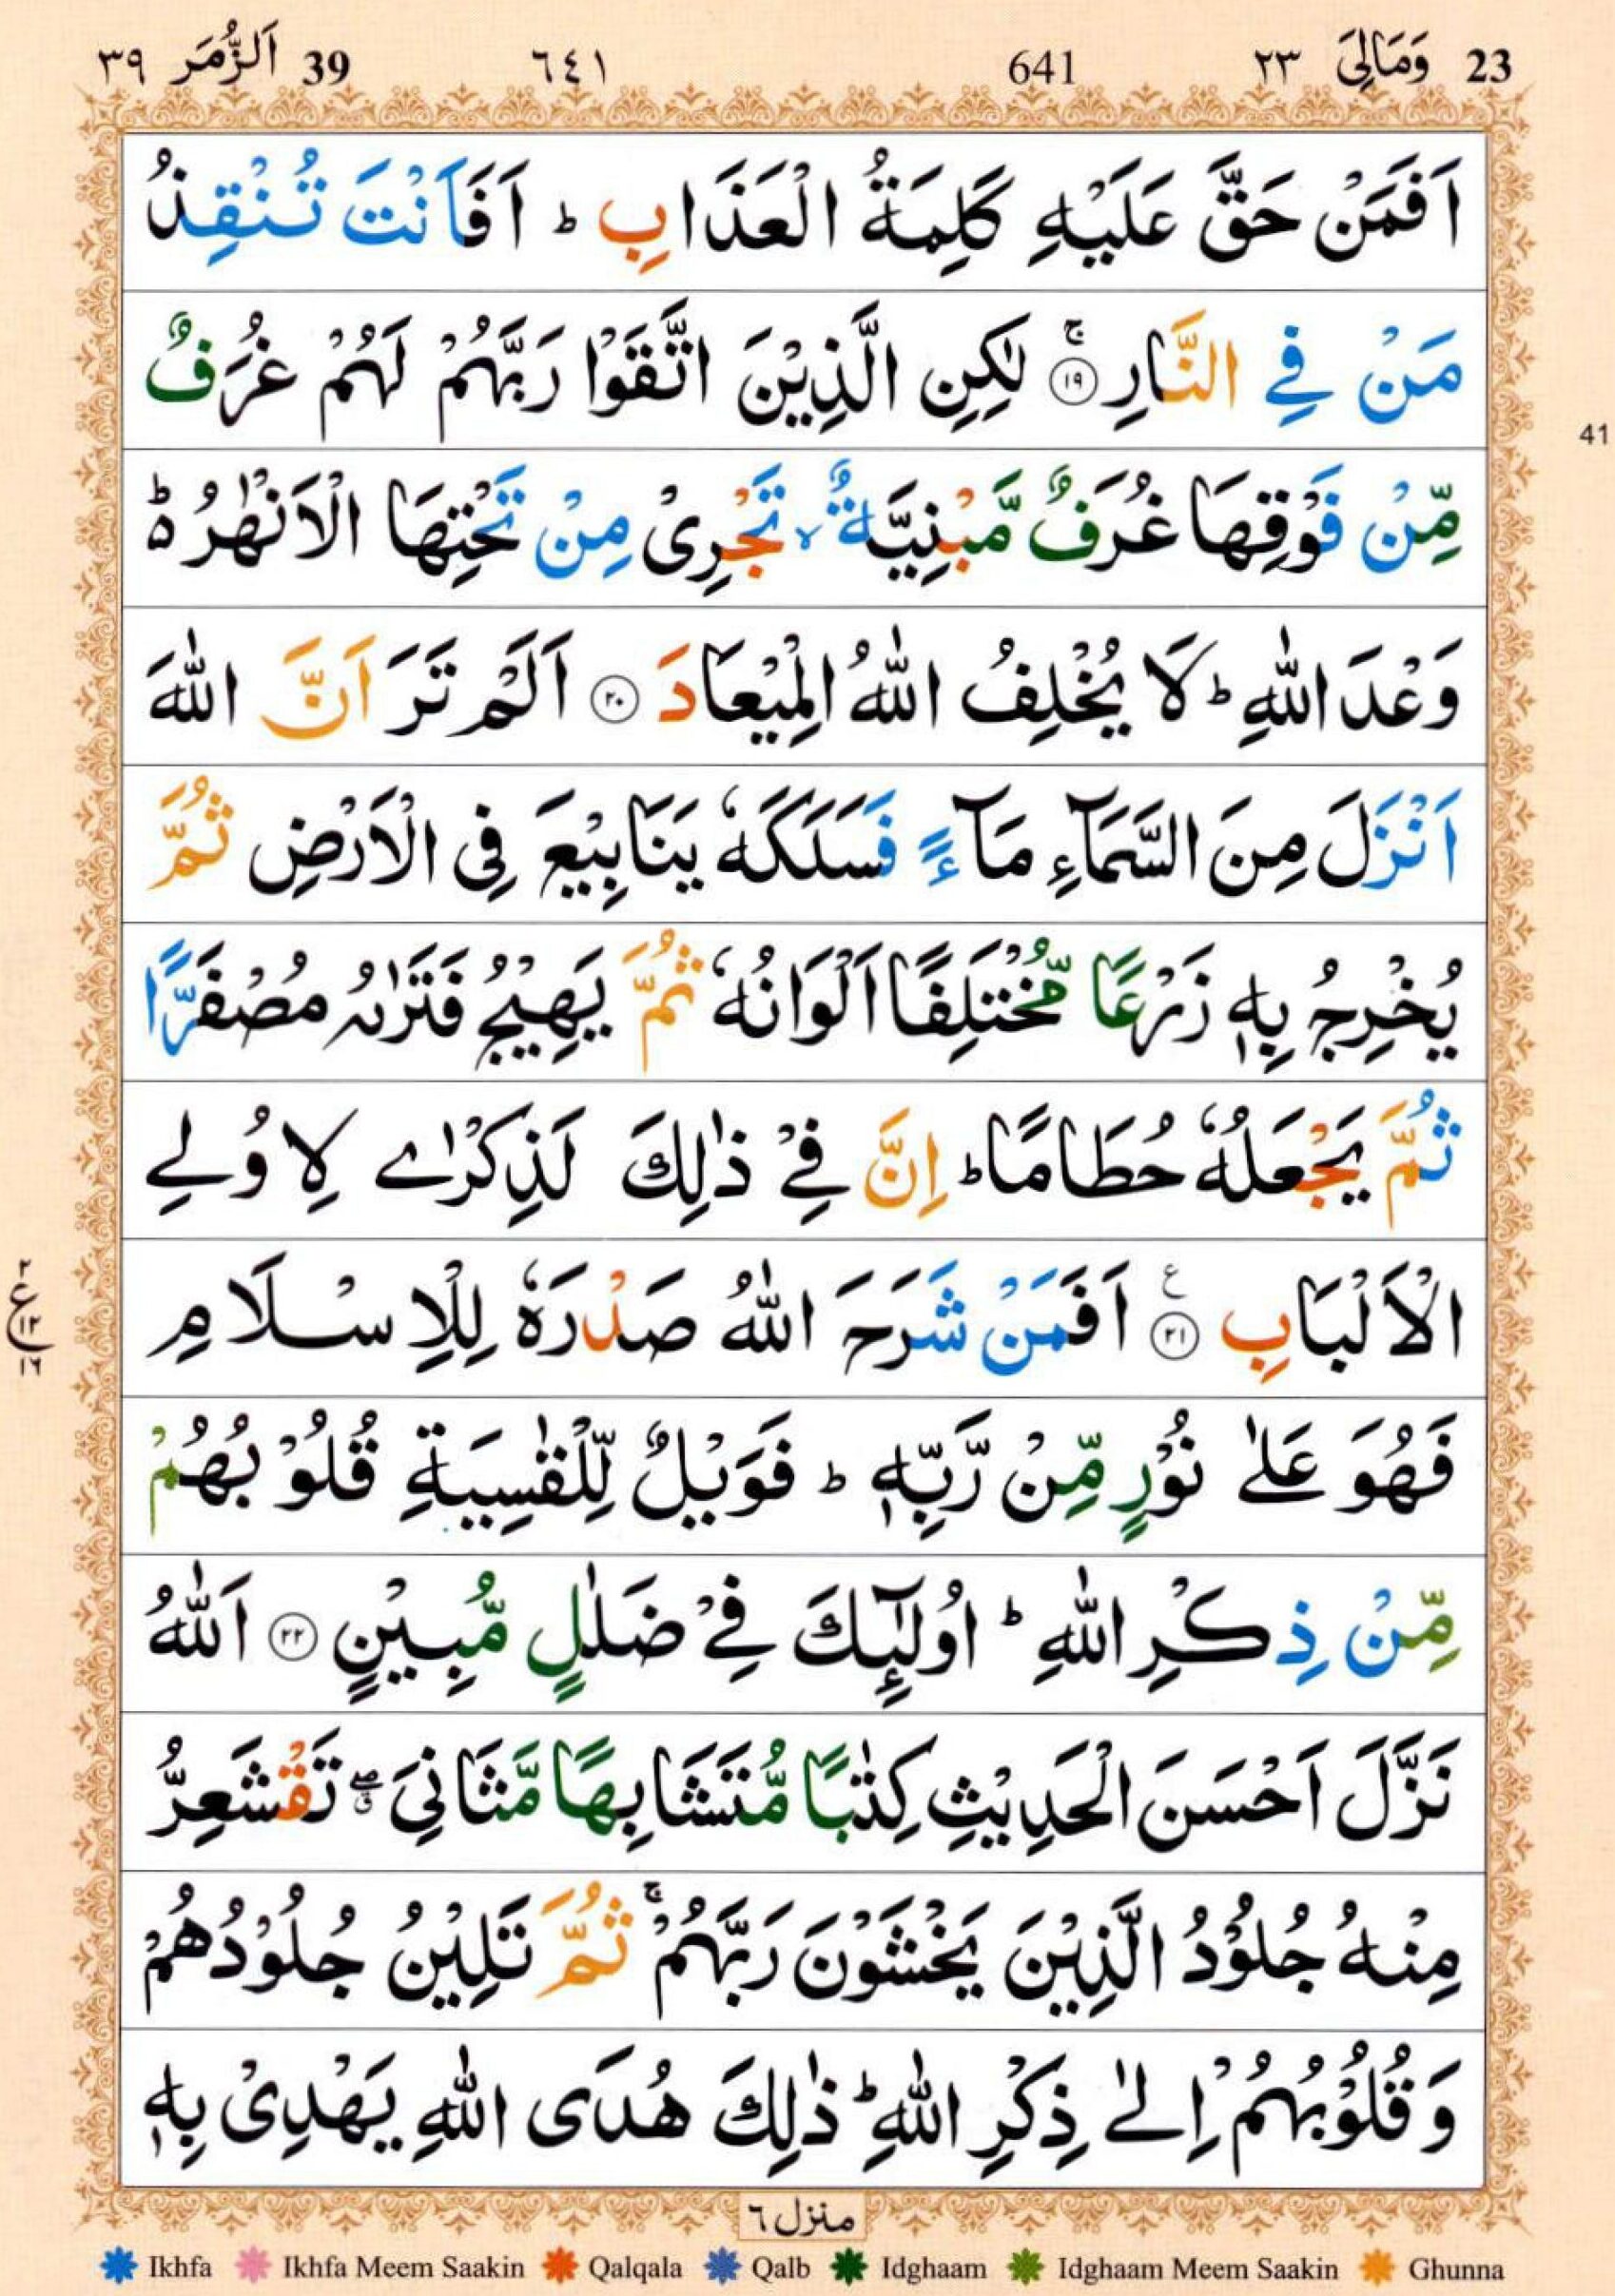 23 وَمَالِيَ ٢٣ 641 ٦٤١ 39 اَلزُّمَر ٣٩
اَفَمَنْ حَقَّ عَلَيْهِ كَلِمَةُ الْعَذَابِ ؕ اَفَاَنْتَ تُنْقِذُ
مَنْ فِي النَّارِ ۚ ﴿۱۹﴾ لٰكِنِ الَّذِيْنَ اتَّقَوْا رَبَّهُمْ لَهُمْ غُرَفٌ
مِّنْ فَوْقِهَا غُرَفٌ مَّبْنِيَّةٌ ۙ تَجْرِيْ مِنْ تَحْتِهَا الْاَنْهٰرُ ؕ۬
وَعْدَ اللّٰهِ ؕ لَا يُخْلِفُ اللّٰهُ الْمِيْعَادَ ﴿۲۰﴾ اَلَمْ تَرَ اَنَّ اللّٰهَ
اَنْزَلَ مِنَ السَّمَآءِ مَآءً فَسَلَكَهٗ يَنَابِيْعَ فِي الْاَرْضِ ثُمَّ
يُخْرِجُ بِهٖ زَرْعًا مُّخْتَلِفًا اَلْوَانُهٗ ثُمَّ يَهِيْجُ فَتَرٰىهُ مُصْفَرًّا
ثُمَّ يَجْعَلُهٗ حُطَامًا ؕ اِنَّ فِيْ ذٰلِكَ لَذِكْرٰى لِاُولِي
الْاَلْبَابِ ﴿۲۱﴾ ع اَفَمَنْ شَرَحَ اللّٰهُ صَدْرَهٗ لِلْاِسْلَامِ
فَهُوَ عَلٰى نُوْرٍ مِّنْ رَّبِّهٖ ؕ فَوَيْلٌ لِّلْقٰسِيَةِ قُلُوْبُهُمْ
مِّنْ ذِكْرِ اللّٰهِ ؕ اُولٰٓئِكَ فِيْ ضَلٰلٍ مُّبِيْنٍ ﴿۲۲﴾ اَللّٰهُ
نَزَّلَ اَحْسَنَ الْحَدِيْثِ كِتٰبًا مُّتَشَابِهًا مَّثَانِيَ ۖۗ تَقْشَعِرُّ
مِنْهُ جُلُوْدُ الَّذِيْنَ يَخْشَوْنَ رَبَّهُمْ ۚ ثُمَّ تَلِيْنُ جُلُوْدُهُمْ
وَ قُلُوْبُهُمْ اِلٰى ذِكْرِ اللّٰهِ ؕ ذٰلِكَ هُدَى اللّٰهِ يَهْدِيْ بِهٖ
41
۲
ع
۱۲
۱٦
منزل ٦
Ikhfa Ikhfa Meem Saakin Qalqala Qalb Idghaam Idghaam Meem Saakin Ghunna